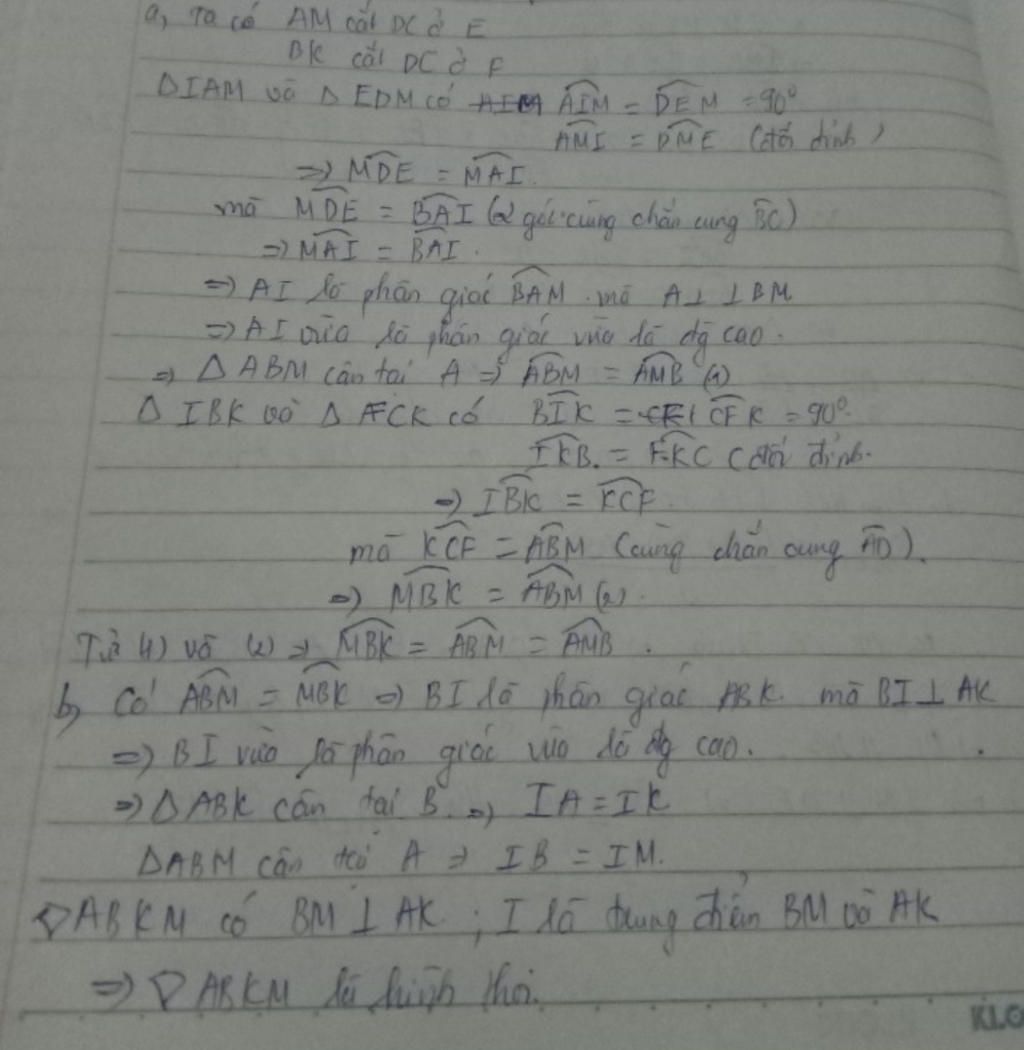 a, Ta có AM cắt DC ở E
BK cắt DC ở F
ΔIAM và ΔEDM có AIM = DEM = 90°
AMI = DME (đối đỉnh)
=> MDE = MAI.
mà MDE = BAI (2 góc cùng chắn cung BC)
=> MAI = BAI.
=> AI là phân giác BAM. mà AI ⊥ BM
=> AI vừa là phân giác vừa là đg cao.
=> Δ ABM cân tại A => ABM = AMB (1)
Δ IBK và Δ FCK có BIK = CFK = 90°.
IKB = FKC (đối đỉnh.
=> IBK = KCF.
mà KCF = ABM (cùng chắn cung AD).
=> MBK = ABM (2).
Từ (1) và (2) => MBK = ABM = AMB.
b, Có ABM = MBK => BI là phân giác ABK. mà BI ⊥ AK
=> BI vừa là phân giác vừa là đg cao.
=> Δ ABK cân tại B. => IA = IK
ΔABM cân tại A => IB = IM.
▽ABKM có BM ⊥ AK ; I là trung điểm BM và AK
=> ▽ ABKM là hình thoi.
KLO